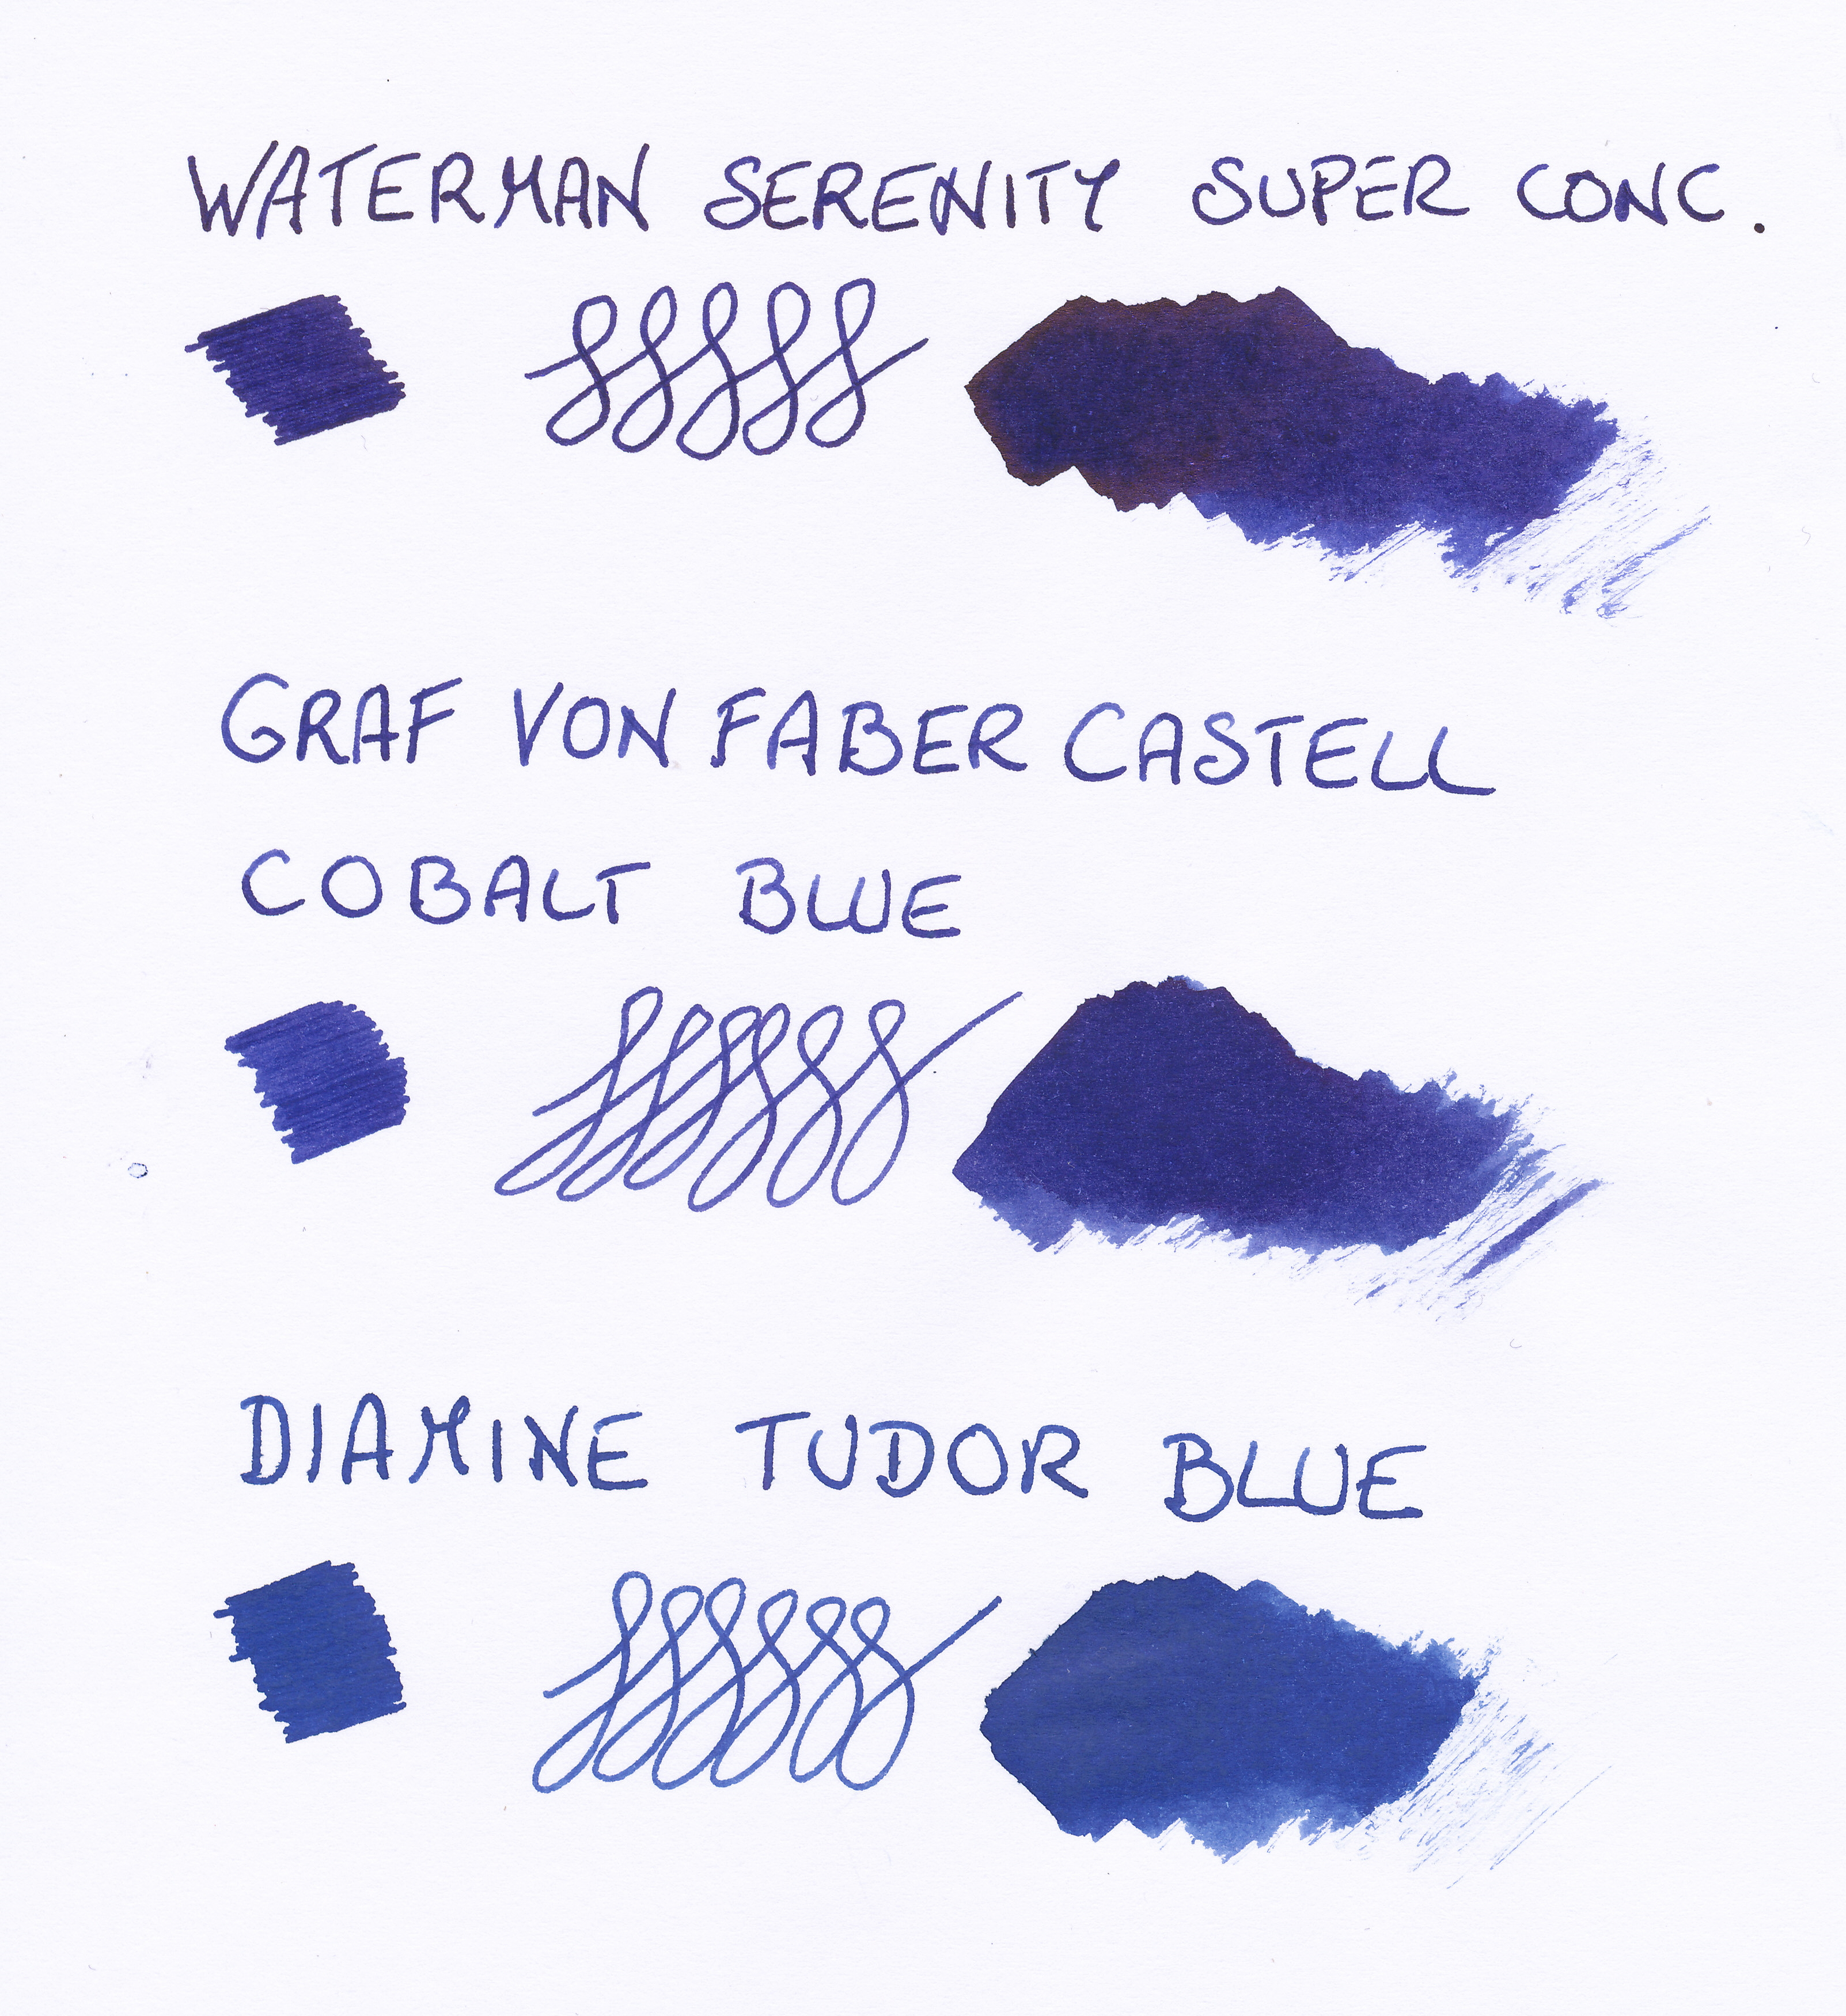 WATERMAN SERENITY SUPER CONC.
GRAF VON FABER CASTELL
COBALT BLUE
DIAMINE TUDOR BLUE